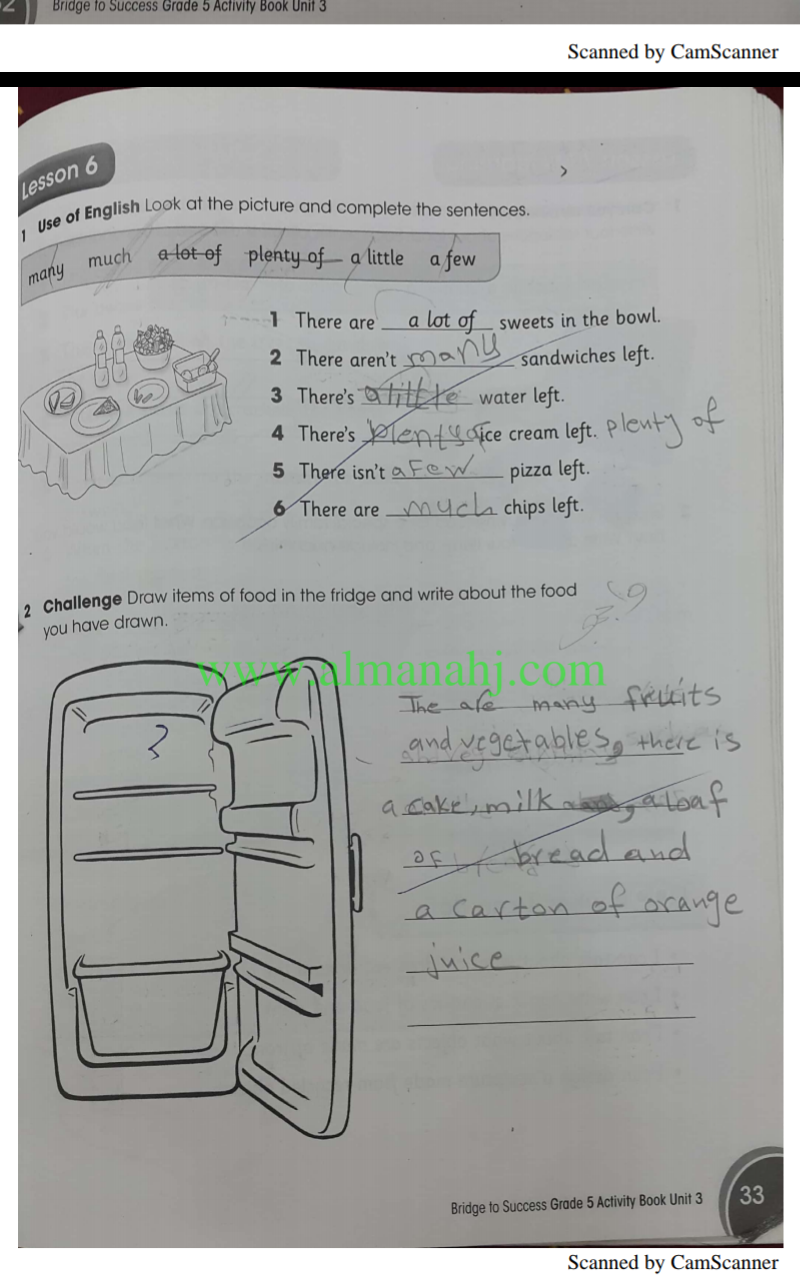 Bridge to Success Grade 5 Activity Book Unit 3
Scanned by CamScanner
Lesson 6
1 Use of English Look at the picture and complete the sentences.
many much a lot of plenty of a little a few
1 There are a lot of sweets in the bowl.
2 There aren't many sandwiches left.
3 There's a little water left.
4 There's plenty of ice cream left. plenty of
5 There isn't a few pizza left.
6 There are much chips left.
2 Challenge Draw items of food in the fridge and write about the food
you have drawn.
www.almanahj.com
The are many fruits
and vegetables, there is
a cake, milk, a loaf
of bread and
a carton of orange
juice
Bridge to Success Grade 5 Activity Book Unit 3 33
Scanned by CamScanner